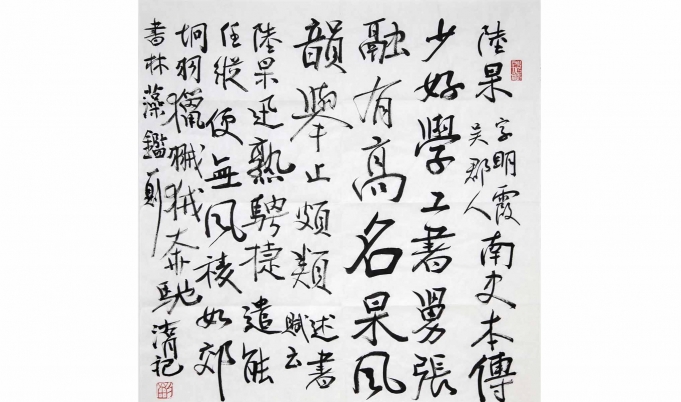 陸杲 字明霞 吴郡人 南史本傳
少好學工書舅張
融有高名杲風
韻舉止頗類 述書賦云
陸杲迅熟騁捷遣能
任縱便無風稜如郊
坰羽獵䎒戢奔馳
書林藻鑑一則 清祀